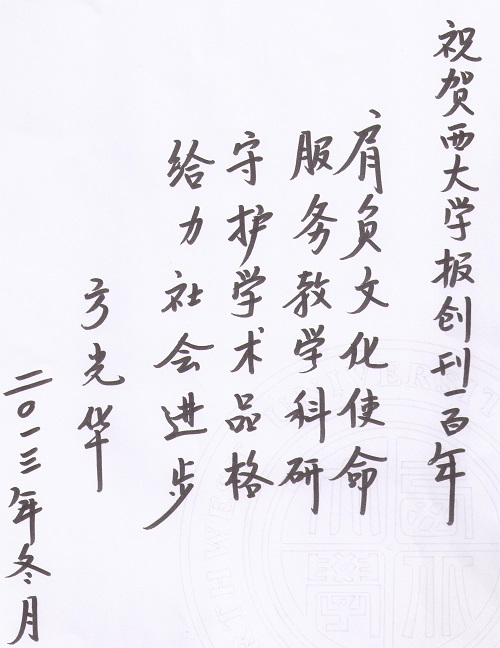 祝贺西大学报创刊一百年
肩负文化使命
服务教学科研
守护学术品格
给力社会进步
方光华
二〇一三年冬月